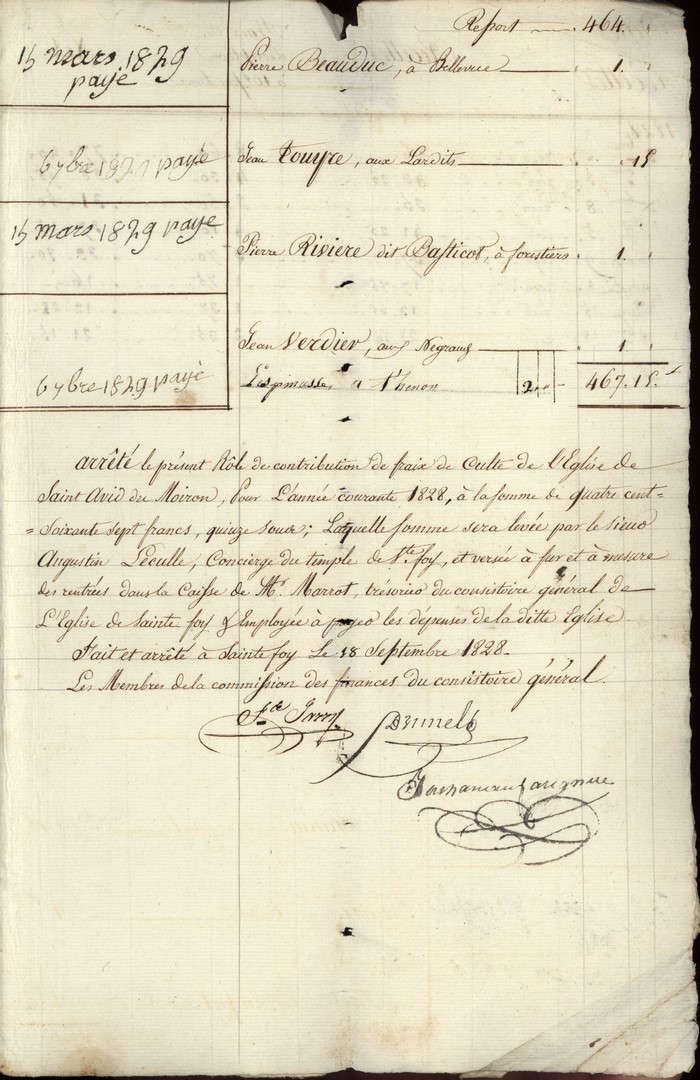 Report 464.
15 mars 1829
payé
Pierre Beauduc, à Bellevue 1.
6 7bre 1829 payé
Jean Touyre, aux Lardits 15
15 mars 1829 payé
Pierre Riviere dit Basticot, à forestiers 1.
Jean Verdier, aux Negrauds 1
6 7bre 1829 payé
Lespinasse a thenon 2 467.15.s
arrêté le présent Rôle de contribution de fraix de Culte de l'Eglise de
Saint Avid du Moiron, Pour L'année courante 1828, à la somme de quatre cent=
=Soixante sept francs, quinze sous; Laquelle somme sera levée par le sieur
Augustin Léculle, Concierge du temple de Ste foy, et versée à fur et à mesure
des rentrées dans la Caisse de Mr. Marrot, trésorier du consistoire général de
L'Eglise de Sainte foy & Employée à payer les dépenses de la ditte Eglise.
Fait et arrêté à Sainte foy Le 18 Septembre 1828.
Les Membres de la commission des finances du consistoire général.